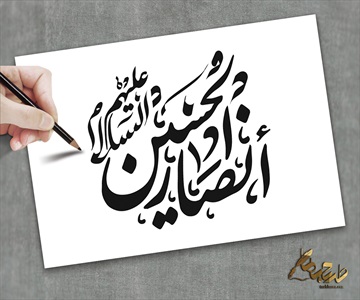 أنصار الحسين
عليهم السلام